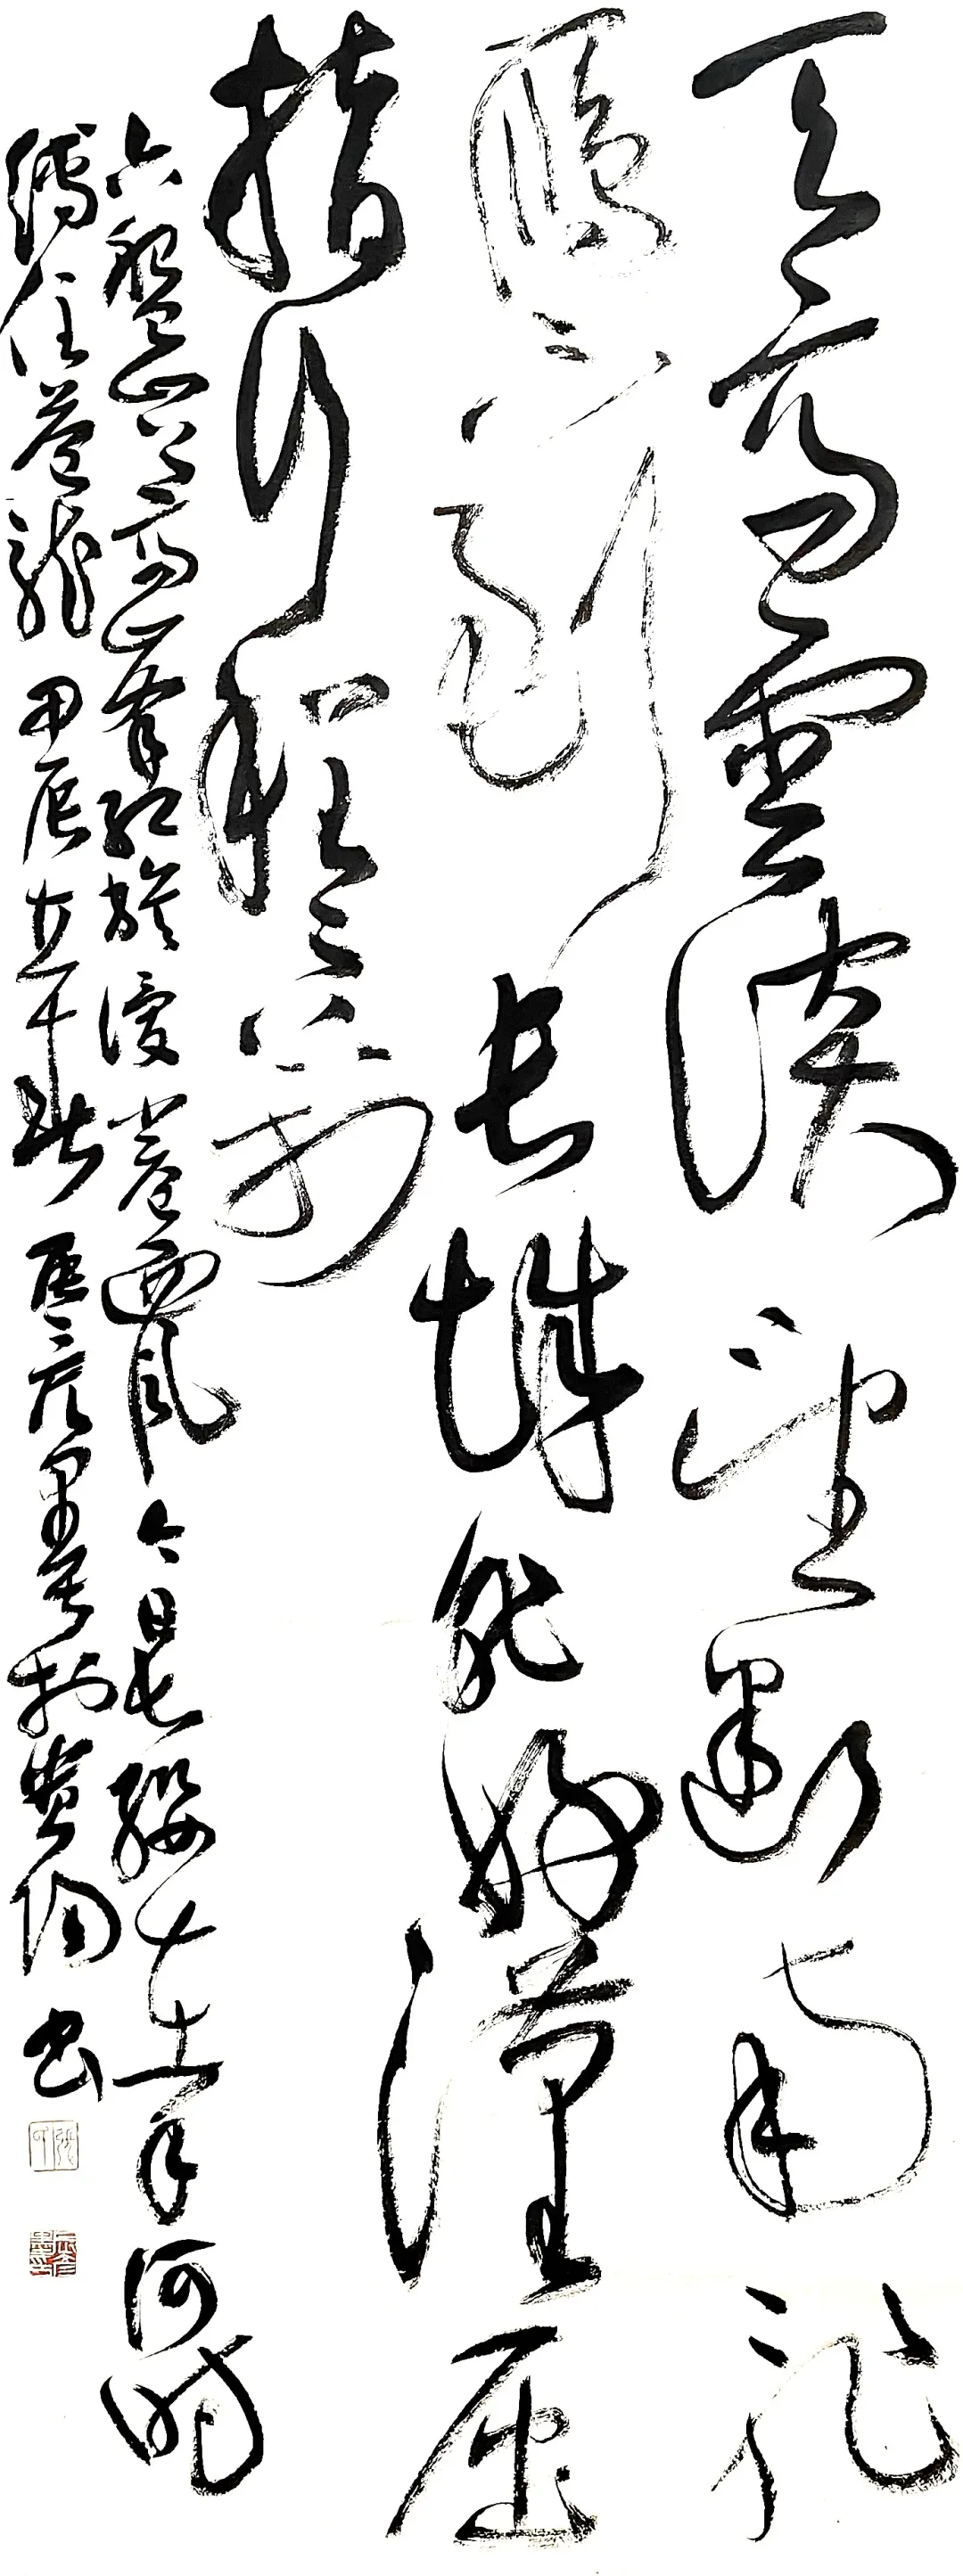 天高雲淡望斷南飛
雁不到長城非好漢屈
指行程二萬
六盤山上高峯紅旗漫卷西風今日長纓在手何時
縛住蒼龍 甲辰 於貴陽 書